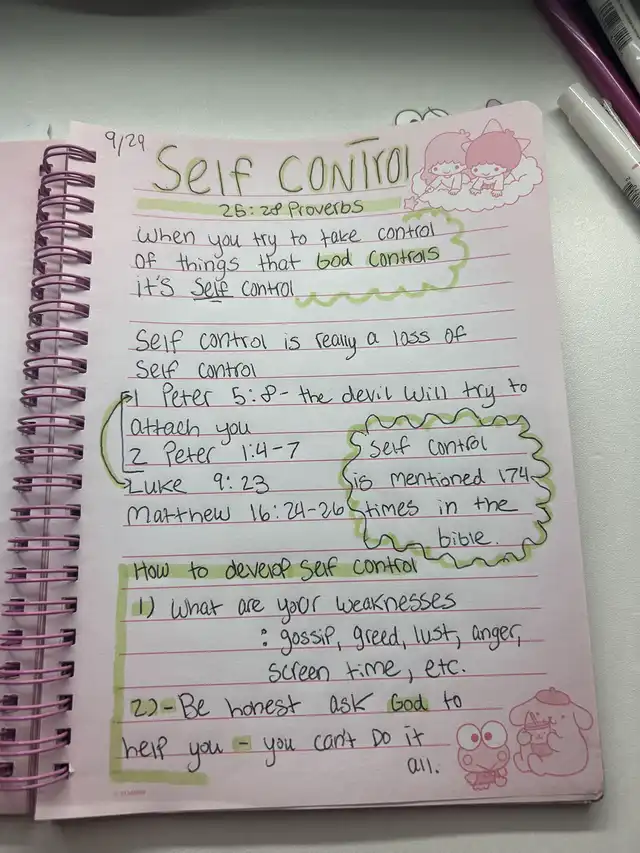 9/29
Self CONTROl
25:28 Proverbs
When you try to take control
of things that God controls
it's Self control
Self control is really a loss of
Self control
1 Peter 5:8 - the devil will try to
attach you
2 Peter 1:4-7
Luke 9:23
Matthew 16:24-26
Self control
is mentioned 174
times in the
bible.
How to develop self control
1) What are your weaknesses
: gossip, greed, lust, anger,
screen time, etc.
2) - Be honest ask God to
help you - you can't Do it
all.